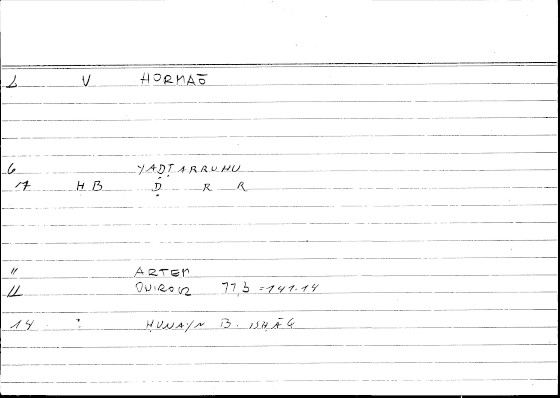 L V HORMAŌ
6 YAḌṬARRUHU
17 H B Ḍ R R
" ARTEM
11 77,5 = 141.14
14 : ḤUNAYN B. ISḤĀQ